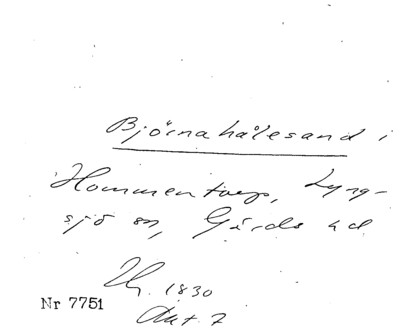 Björnahålesand i
Hommentorp, Lyng-
sjö sn, Gärds hd
1830
Nr 7751
Akt. 7